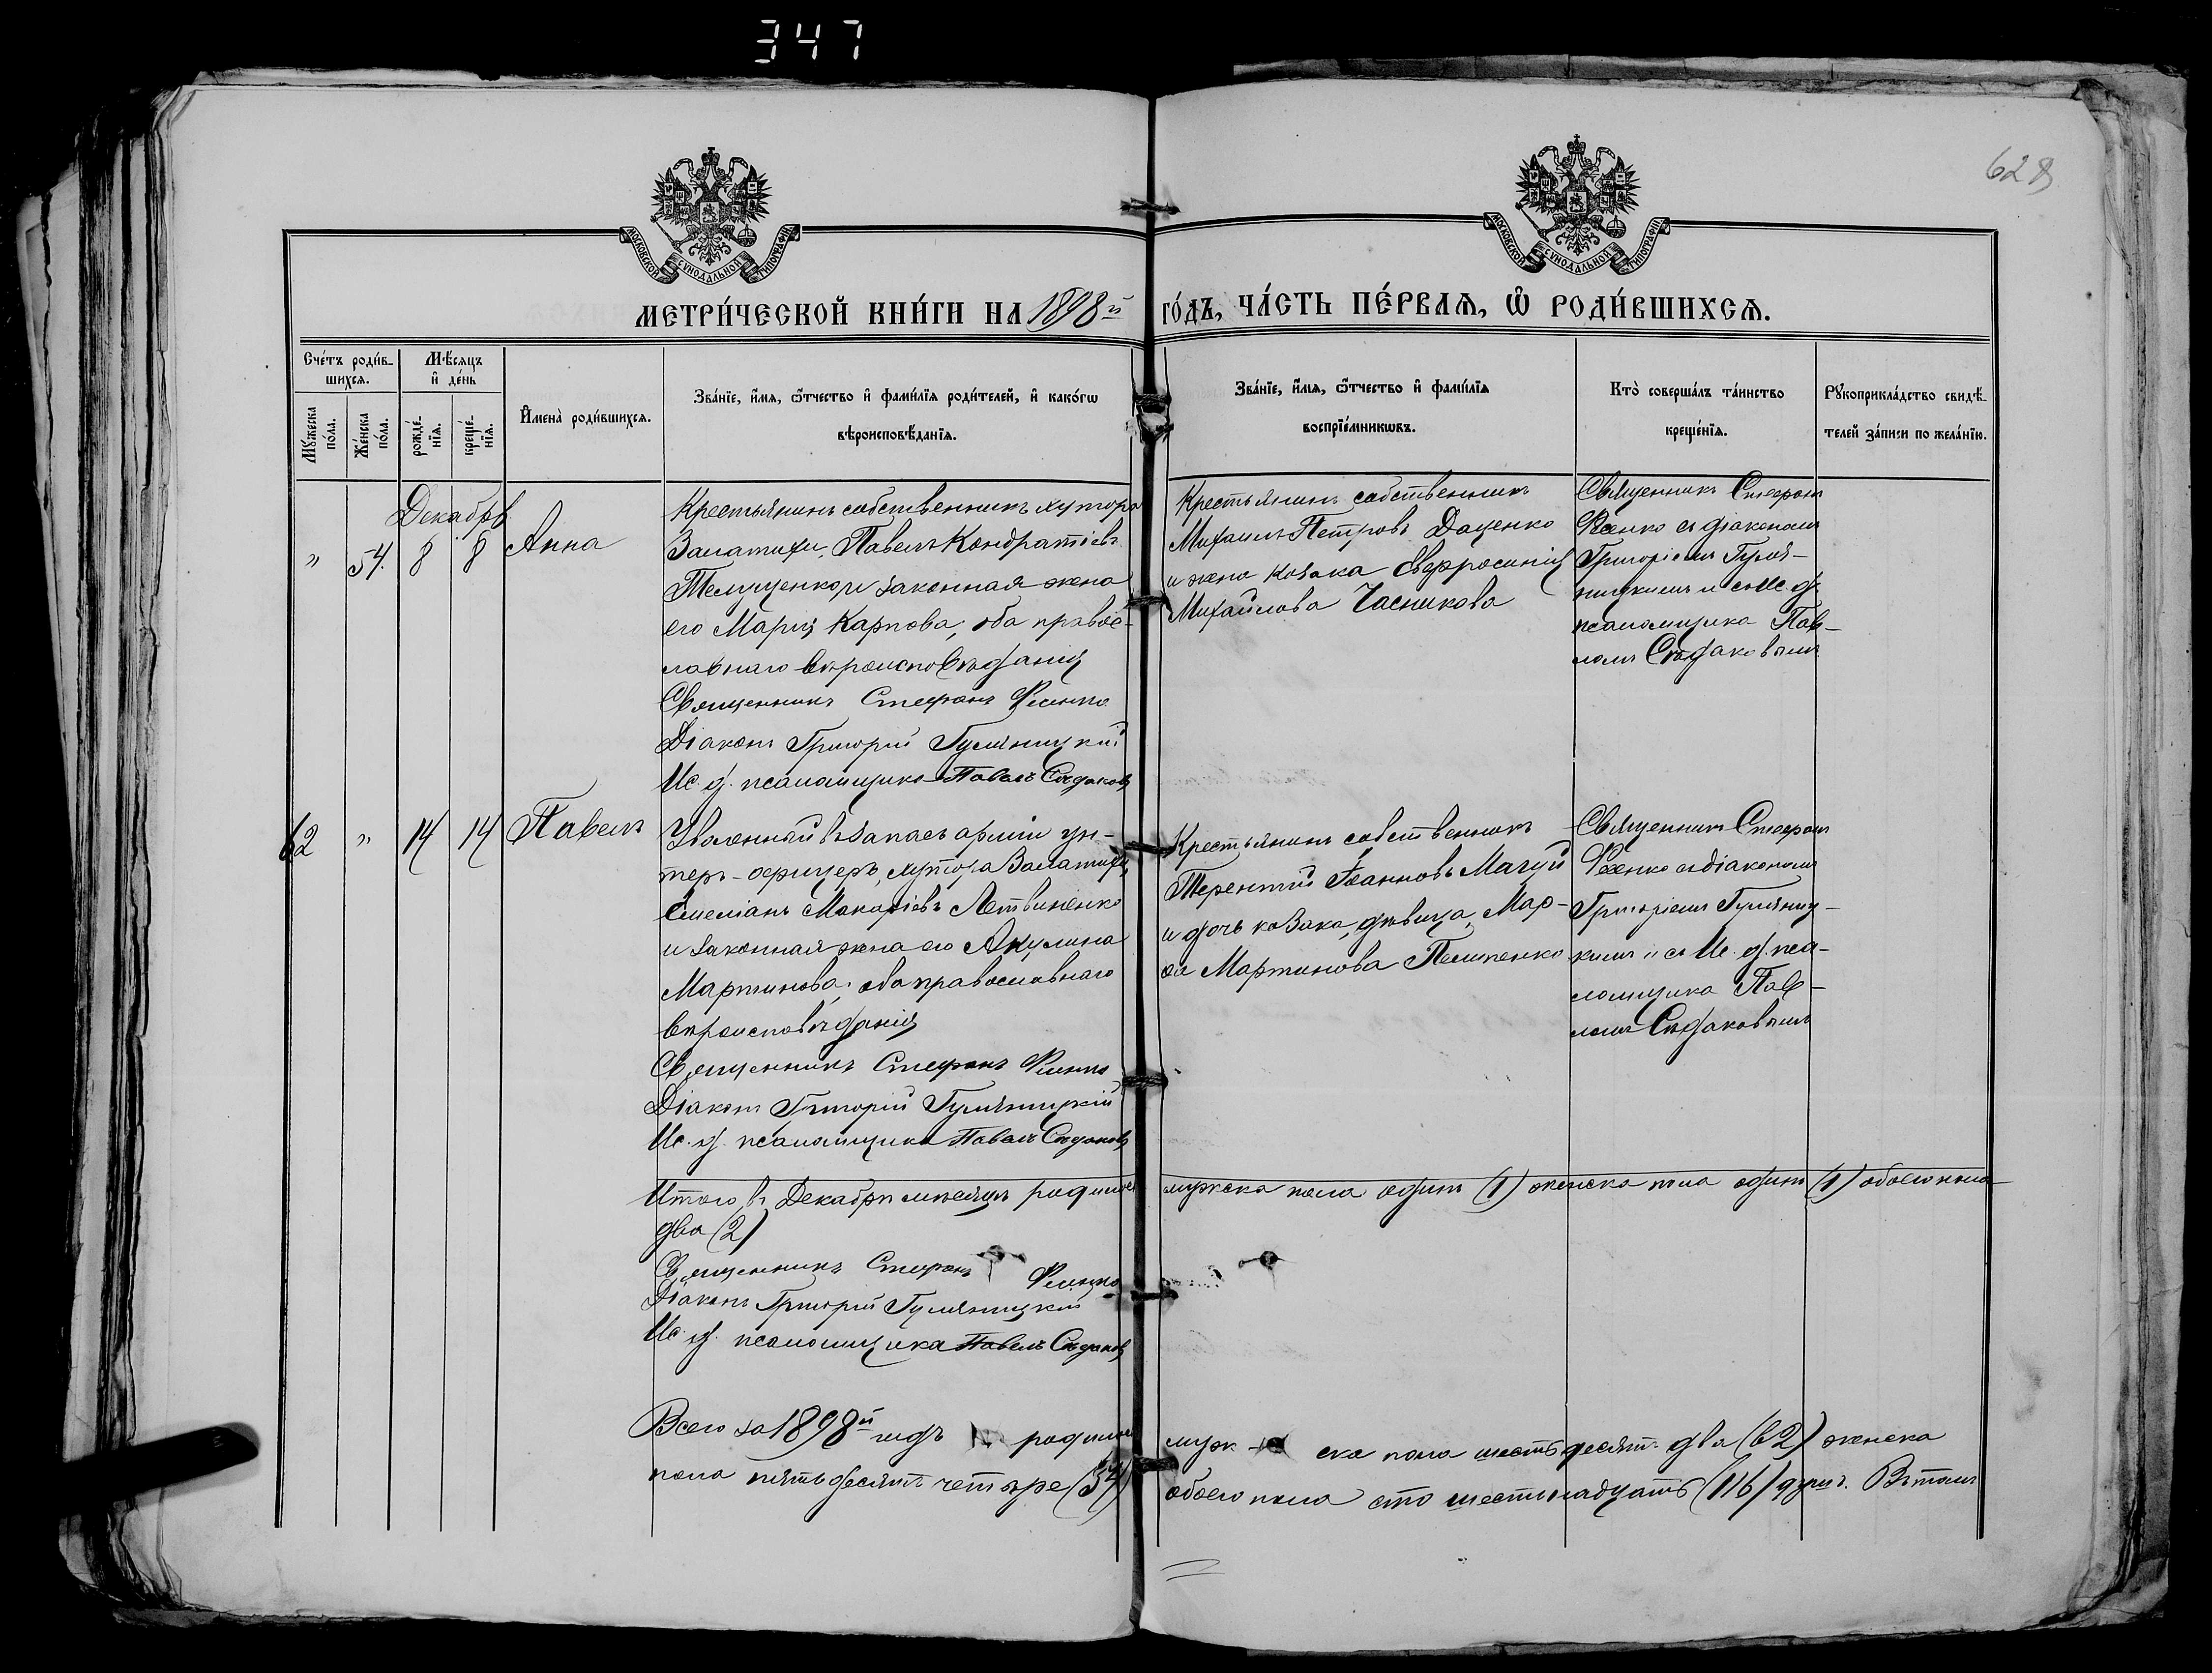 347
628
МОСКОВСКОЙ СѴНОДАЛЬНОЙ ТИПОГРАФІИ
МОСКОВСКОЙ СѴНОДАЛЬНОЙ ТИПОГРАФІИ
МЕТРИ́ЧЕСКОЙ КНИ́ГИ НА 1898й ГО́ДЪ, ЧА́СТЬ ПЕ́РВАѦ, Ѡ РОДИ́ВШИХСѦ.
Сче́тъ роди́в-
шихсѧ.
Мꙋ́жеска
по́ла.
Же́нска
по́ла.
Мѣ́сѧцъ
и҆ де́нь
рожде́-
нїѧ.
креще́-
нїѧ.
И҆мена̀ роди́вшихсѧ.
Зва́нїе, и҆́мѧ, ѻ҆́тчество и҆ фами́лїѧ роди́телей, и҆ како́гѡ
вѣроисповѣ́данїѧ.
Зва́нїе, и҆́мѧ, ѻ҆́тчество и҆ фами́лїѧ
воспрїе́мникѡвъ.
Кто̀ соверша́лъ та́инство
креще́нїѧ.
Рꙋкоприкла́дство свидѣ́-
телей за́писи по жела́нїю.
Декабрь
" 54. 8 8 Анна
Крестьянинъ собственникъ хутора
Залатихи, Павелъ Кондратіевъ
и законная жена
его Марія Карпова, оба правос-
лавнаго вѣроисповѣданія
Священникъ Стефанъ
Діаконъ Григорій Гуляницкій
Ис. д. псаломщика Павелъ Судаковъ
Крестьянинъ собственникъ
Михаилъ Петровъ Даценко
и жена козака Евфросинія
Михайлова Часникова
Священникъ Стефанъ
съ діакономъ
Григоріемъ Гуля-
ницкимъ и съ Ис. д.
псаломщика Пав-
ломъ Судаковымъ
62 " 14 14 Павелъ
Уволенный въ запасъ арміи ун-
теръ-офицеръ, хутора Залатихи,
Емеліанъ Макаріевъ Литвиненко
и законная жена его Акулина
Мартинова, оба православнаго
вѣроисповѣданія
Священникъ Стефанъ
Діаконъ Григорій Гуляницкій
Ис. д. псаломщика Павелъ Судаковъ
Крестьянинъ собственникъ
Терентій Іоанновъ Мачуй
и дочь козака, дѣвица, Мар-
ѳа Мартинова Пелипенко
Священникъ Стефанъ
съ діакономъ
Григоріемъ Гуляниц-
кимъ и съ Ис. д. пса-
ломщика Пав-
ломъ Судаковымъ
Итого въ Декабрѣ мѣсяцѣ родилось мужска пола одинъ (1) женска пола одинъ (1) обоего пола
два (2)
Священникъ Стефанъ
Діаконъ Григорій Гуляницкій
Ис. д. псаломщика Павелъ Судаковъ
Всего за 1898й годъ родилось муж ска пола шестьдесятъ два (62) женска
пола пятьдесятъ четыре (54) обоего пола сто шестьнадцать (116) душъ. Въ томъ